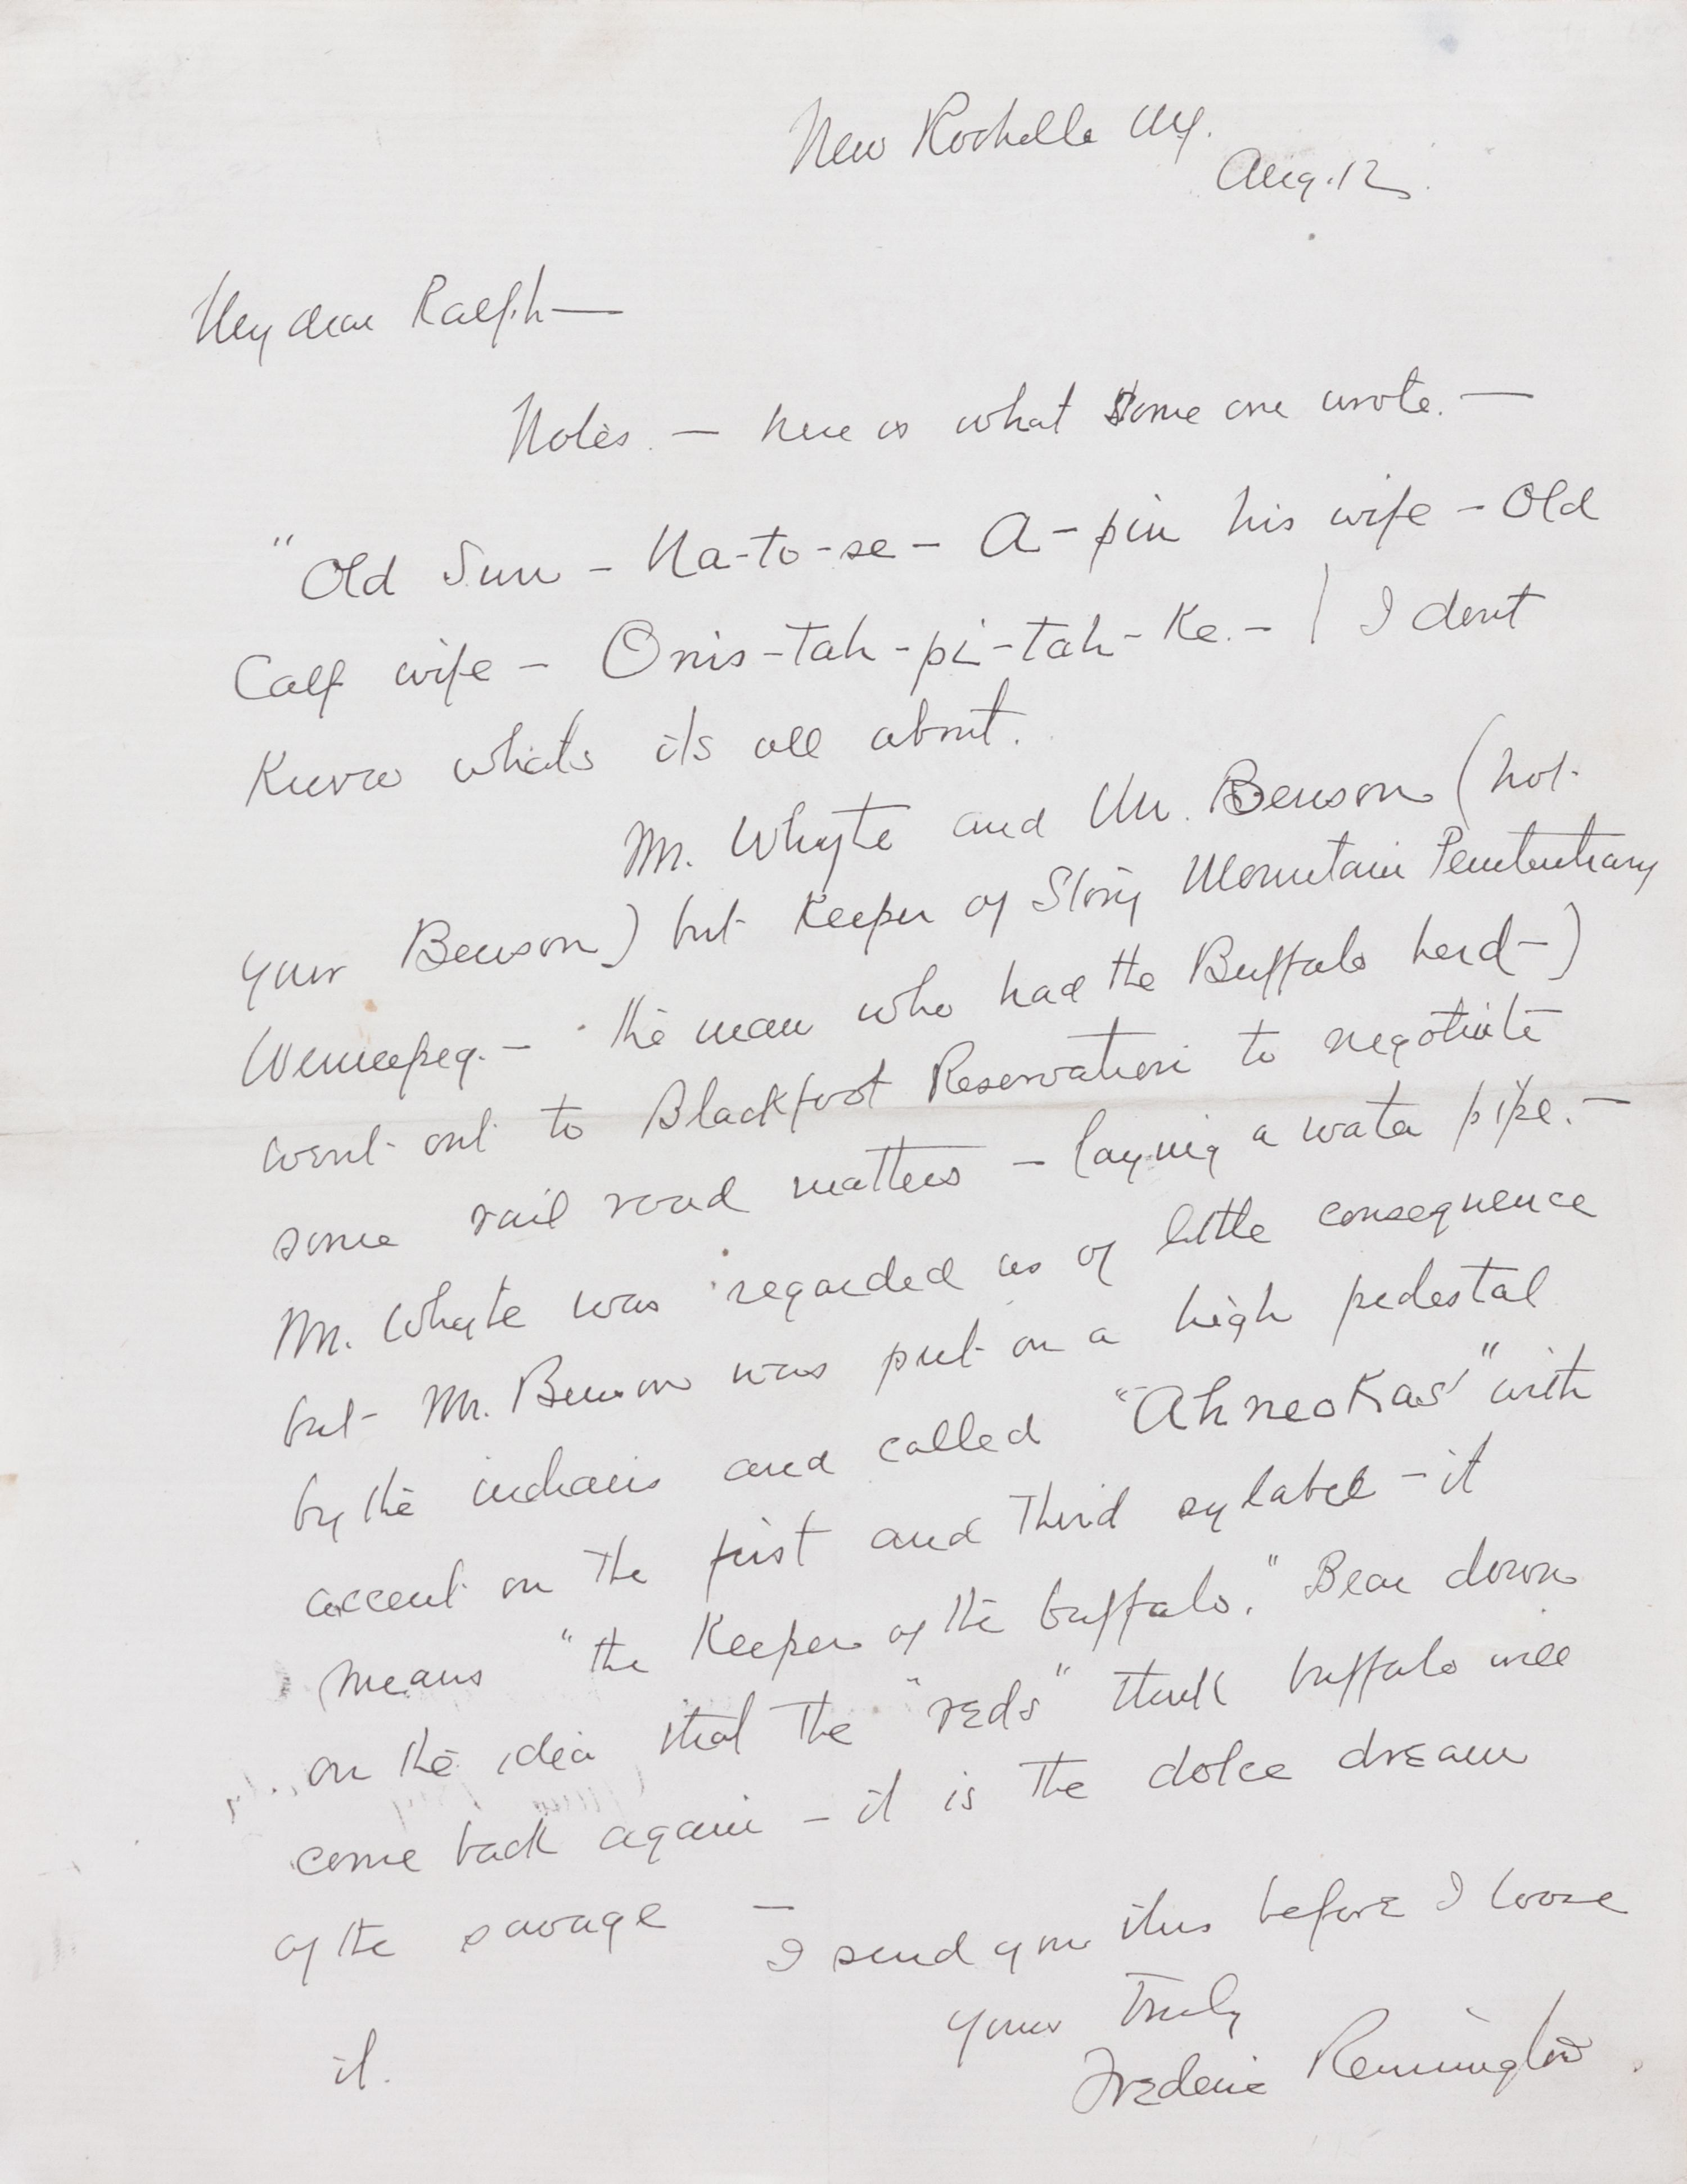 New Rochelle N.Y.
Aug. 12
My dear Ralph —
Notes. — here is what some one wrote. —
"Old Sun - Na-to-se - A-pin his wife - Old
Calf wife - Onis-tah-pi-tah-Ke. - / I dont
Know whats its all about.
Mr. Whyte and Mr. Benson (not
your Benson) but Keeper of Stony Mountain Penitentiary
Winnepeg. - the man who had the Buffalo herd -)
went out to Blackfoot Reservation to negotiate
some rail road matters - laying a water pipe. -
Mr. Whyte was regarded as of little consequence
but Mr. Benson was put on a high pedestal
by the indians and called "Ahneokas" with
accent on the first and third sylabel - it
means "the Keeper of the buffalo." Bear down
on the idea that the "reds" think buffalo will
come back again - it is the dolce dream
of the savage —
I send you this before I loose
it.
yours Truly
Frederic Remington